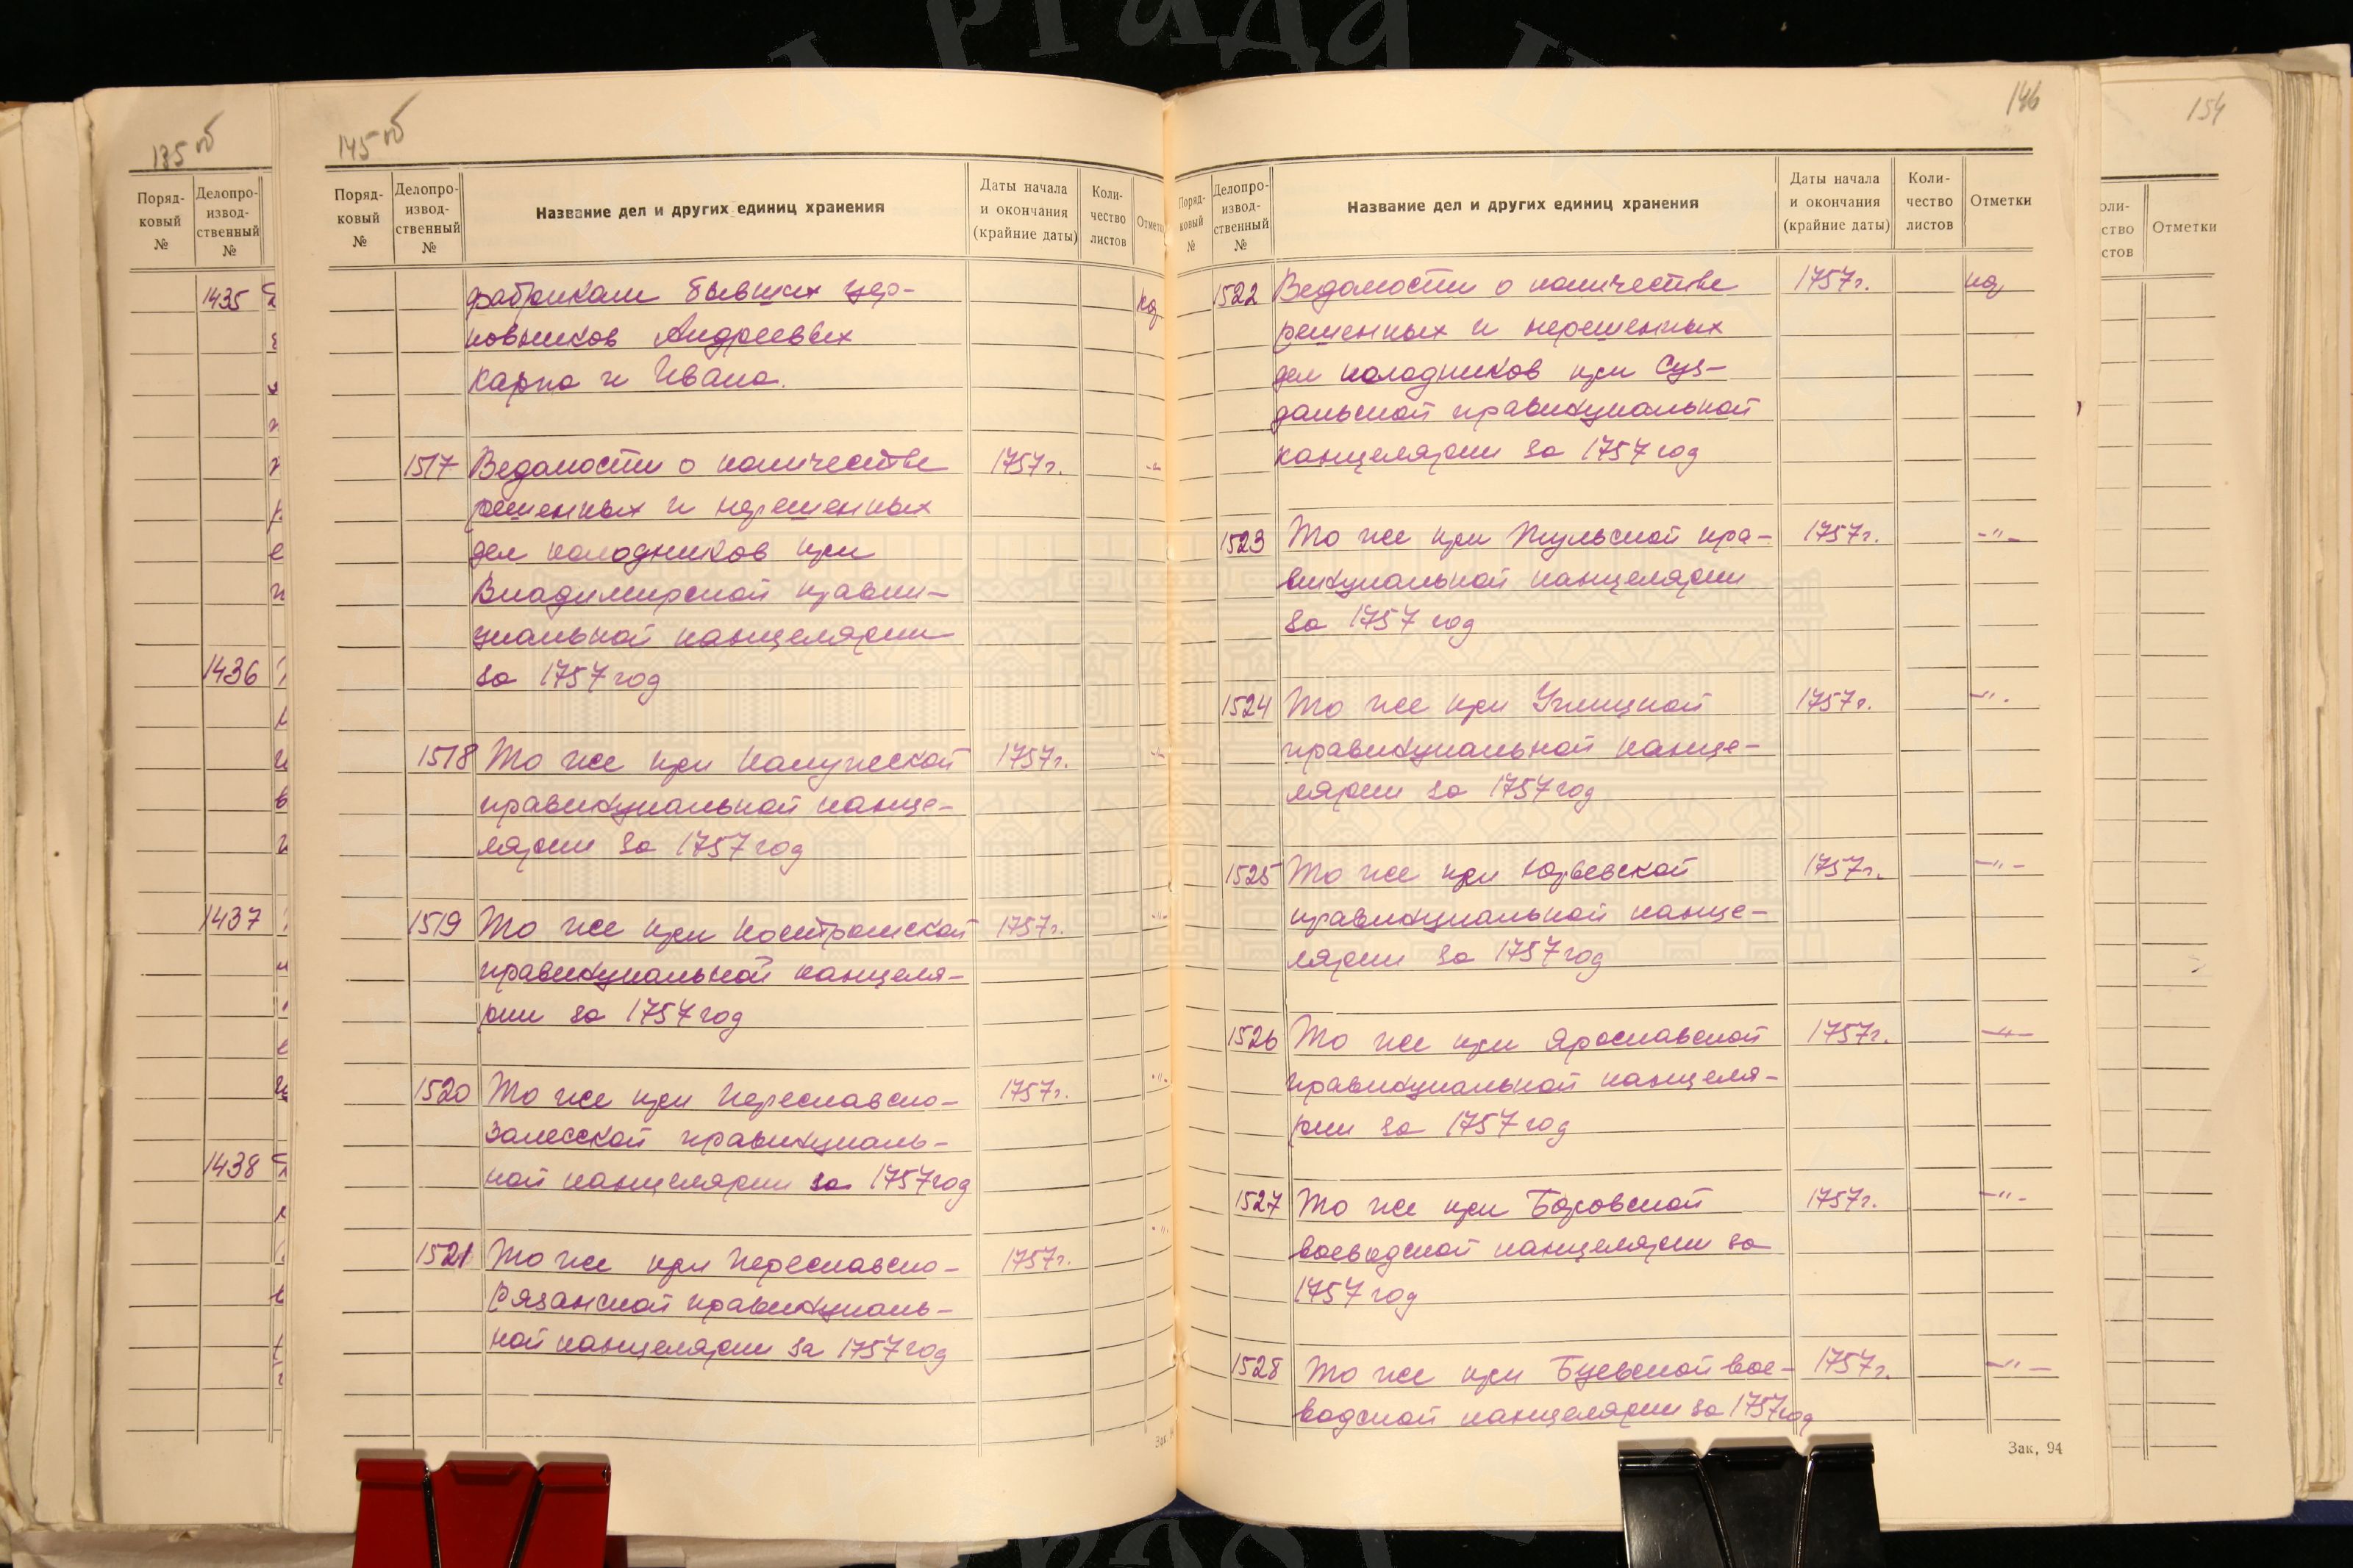 135 об
Поряд-
ковый
№
Делопро-
извод-
ственный
№
1435
1436
1437
1438
145 об
Поряд-
ковый
№
Делопро-
извод-
ственный
№
Название дел и других единиц хранения
Даты начала
и окончания
(крайние даты)
Коли-
чество
листов
Отметки
фабрикам бывших цер-
ковников Андреевых
Карпа и Ивана.
1517 Ведомости о количестве 1757 г. -"-
решенных и нерешенных
дел колодников при
Владимирской провин-
циальной канцелярии
за 1757 год
1518 То же при Калужской 1757 г. -"-
провинциальной канце-
лярии за 1757 год
1519 То же при Костромской 1757 г. -"-
провинциальной канцеля-
рии за 1757 год
1520 То же при Переславско- 1757 г. -"-
Залесской провинциаль-
ной канцелярии за 1757 год
1521 То же при Переславско- 1757 г. -"-
Рязанской провинциаль-
ной канцелярии за 1757 год
146
Поряд-
ковый
№
Делопро-
извод-
ственный
№
Название дел и других единиц хранения
Даты начала
и окончания
(крайние даты)
Коли-
чество
листов
Отметки
1522 Ведомости о количестве 1757 г.
решенных и нерешенных
дел колодников при Суз-
дальской провинциальной
канцелярии за 1757 год
1523 То же при Тульской про- 1757 г. -"-
винциальной канцелярии
за 1757 год
1524 То же при Углицкой 1757 г. -"-
провинциальной канце-
лярии за 1757 год
1525 То же при Юрьевской 1757 г. -"-
провинциальной канце-
лярии за 1757 год
1526 То же при Ярославской 1757 г. -"-
провинциальной канцеля-
рии за 1757 год
1527 То же при Боровской 1757 г. -"-
воеводской канцелярии за
1757 год
1528 То же при Буевской вое- 1757 г. -"-
водской канцелярии за 1757 год
Зак. 94
154
Отметки